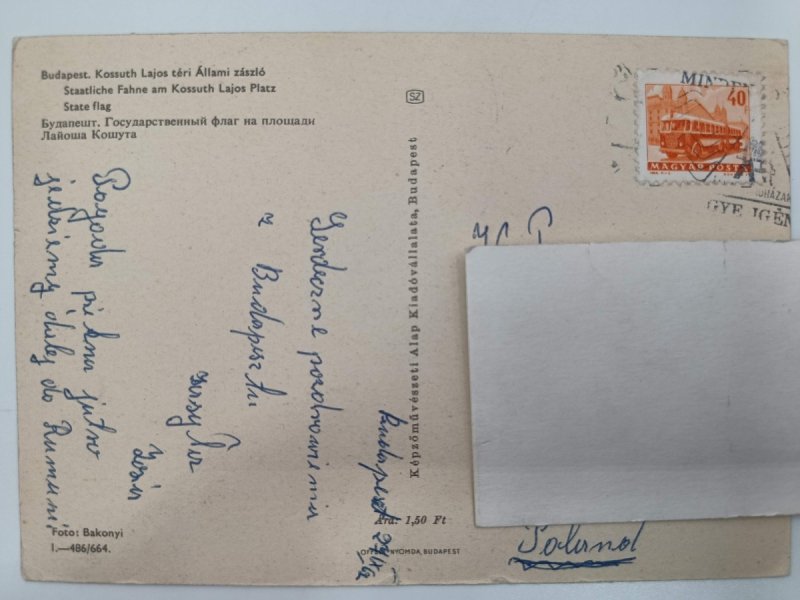 Budapest. Kossuth Lajos téri Állami zászló
Staatliche Fahne am Kossuth Lajos Platz
State flag
Будапешт. Государственный флаг на площади
Лайоша Кошута
SZ
MINDEN
40
MAGYAR POSTA
GYE IGÉN
Budapest
Serdeczne pozdrowienia
z Budapesztu
Pogoda piękna jutro
jedziemy dalej do Rumuni
Képzőművészeti Alap Kiadóvállalata, Budapest
Poland
Ára: 1,50 Ft
NYOMDA, BUDAPEST
Foto: Bakonyi
I.—486/664.